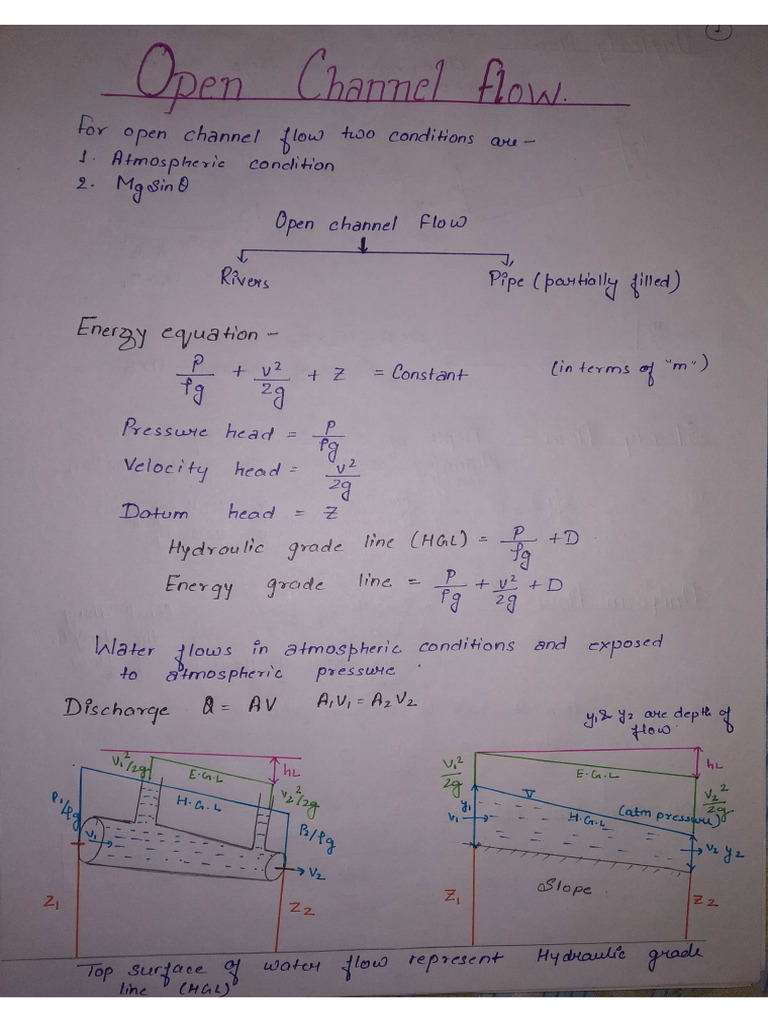 1
Open Channel flow.
For open channel flow two conditions are -
1. Atmospheric condition
2. Mg sin θ
Open channel Flow
Rivers
Pipe (partially filled)
Energy equation -
P/ρg + v²/2g + Z = Constant (in terms of "m")
Pressure head = P/ρg
Velocity head = v²/2g
Datum head = Z
Hydraulic grade line (HGL) = P/ρg + D
Energy grade line = P/ρg + v²/2g + D
Water flows in atmospheric conditions and exposed
to atmospheric pressure
Discharge Q = AV A₁V₁ = A₂V₂
y₁ & y₂ are depth of
flow
V₁²/2g
E.G.L
hL
H.G.L
V₂²/2g
P₁/ρg
V₁
P₂/ρg
V₂
Z₁
Z₂
V₁²/2g
E.G.L
hL
V₂²/2g
y₁
V₁
H.G.L
(atm pressure)
V₂ y₂
Slope
Z₁
Z₂
Top surface of water flow represent Hydraulic grade
line (HGL)